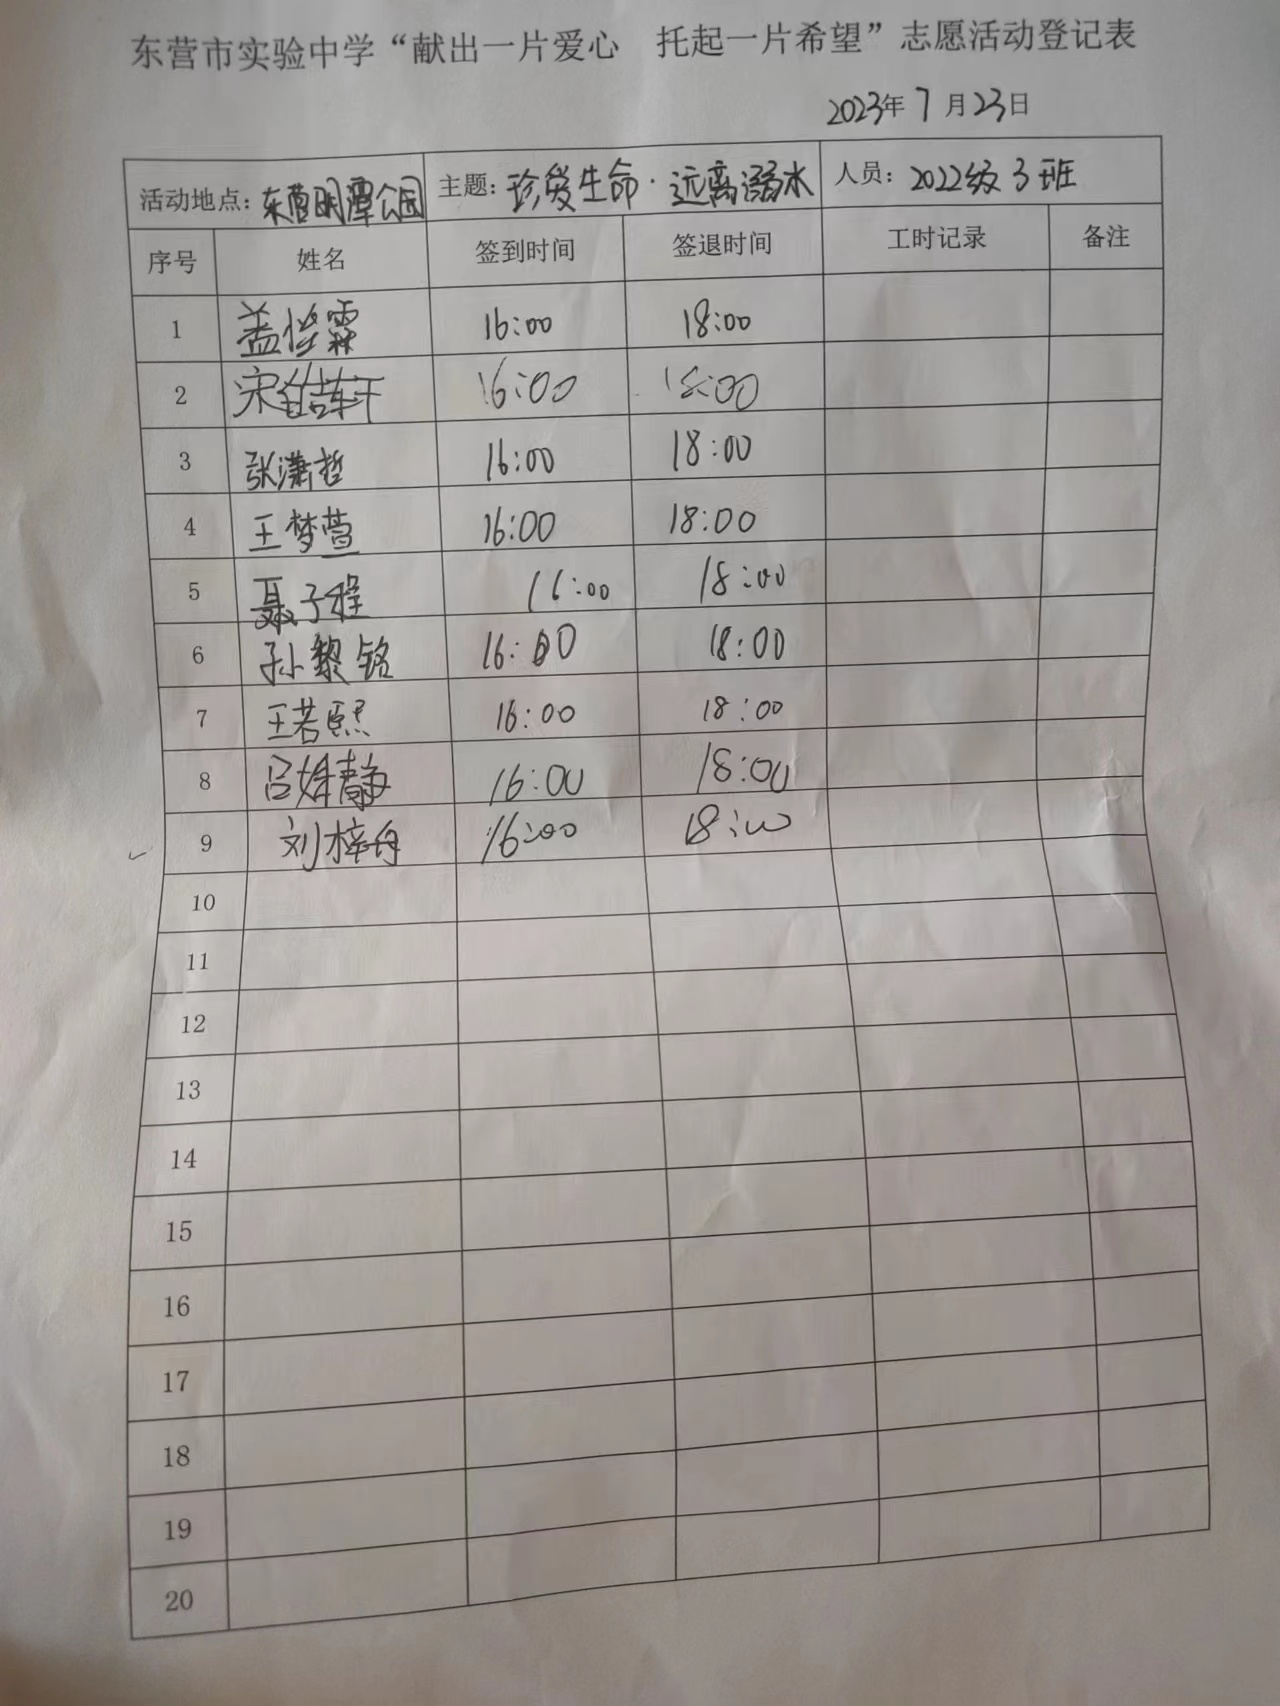 东营市实验中学“献出一片爱心 托起一片希望”志愿活动登记表
2023年7月23日
活动地点：东营明潭公园 主题：珍爱生命·远离溺水 人员：2022级3班
序号 姓名 签到时间 签退时间 工时记录 备注
1 盖 霖 16:00 18:00
2 宋 轩 16:00 18:00
3 张潇哲 16:00 18:00
4 王梦萱 16:00 18:00
5 聂子程 16:00 18:00
6 孙黎铭 16:00 18:00
7 王若熙 16:00 18:00
8 吕婧静 16:00 18:00
9 刘梓舟 16:00 18:00
10
11
12
13
14
15
16
17
18
19
20